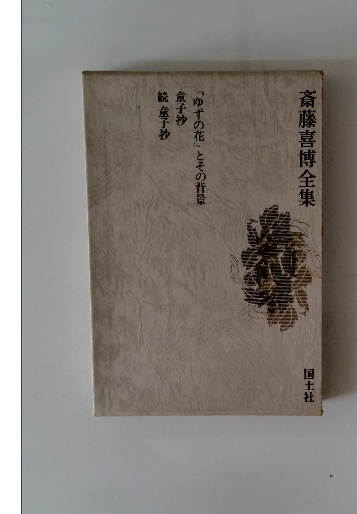 斎藤喜博全集
「ゆずの花」とその背景
童子抄
続 童子抄
国土社